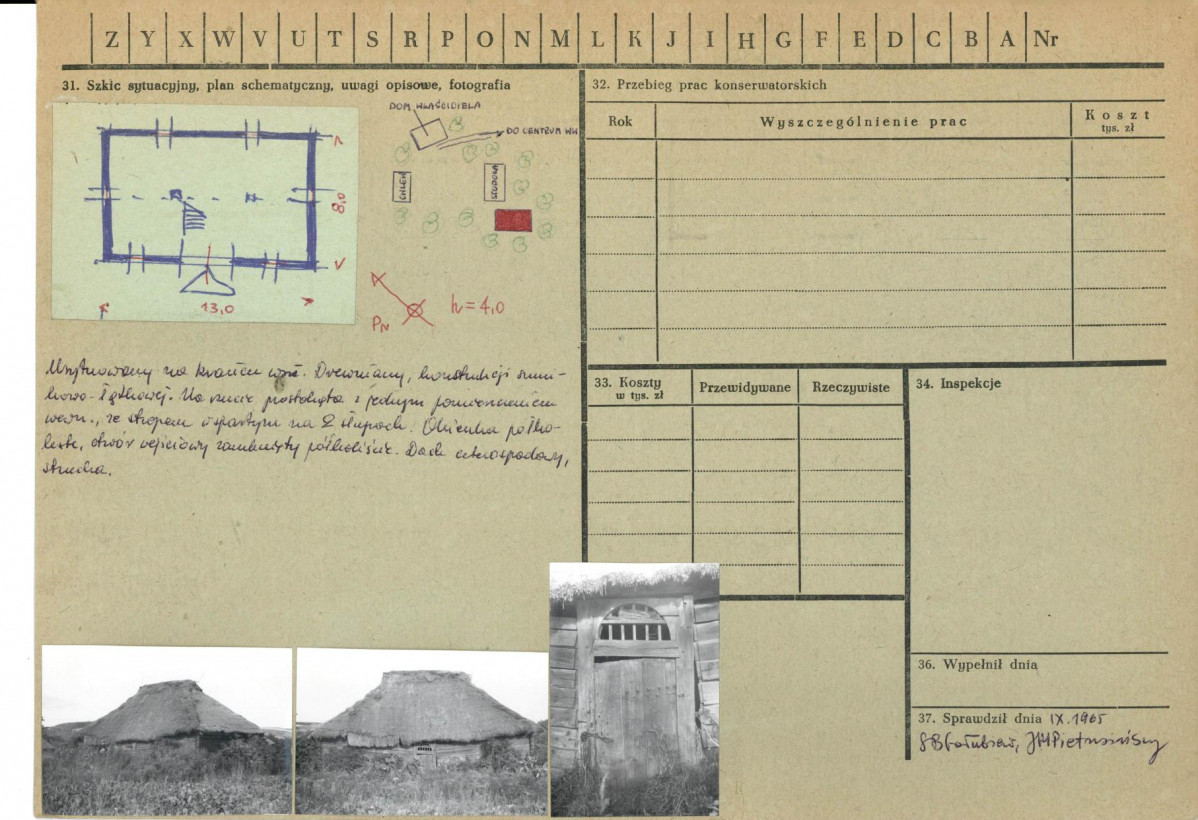 Z Y X W V U T S R P O N M L K J I H G F E D C B A Nr
31. Szkic sytuacyjny, plan schematyczny, uwagi opisowe, fotografia
8,0
13,0
DOM WŁAŚCICIELA
DO CENTRUM WSI
CHLEW
STODOŁA
PN
h = 4,0
Usytuowany na krańcu wsi. Drewniany, konstrukcji sumi-
kowo-łątkowej. Na rzucie prostokąta z jednym pomieszczeniem
wewn., ze stropem wspartym na 2 słupach. Okienka półko-
liste, otwór wejściowy zamknięty półkoliście. Dach czterospadowy,
strzecha.
32. Przebieg prac konserwatorskich
Rok
Wyszczególnienie prac
Koszt
tys. zł
33. Koszty
w tys. zł
Przewidywane
Rzeczywiste
34. Inspekcje
36. Wypełnił dnia
37. Sprawdził dnia IX.1965